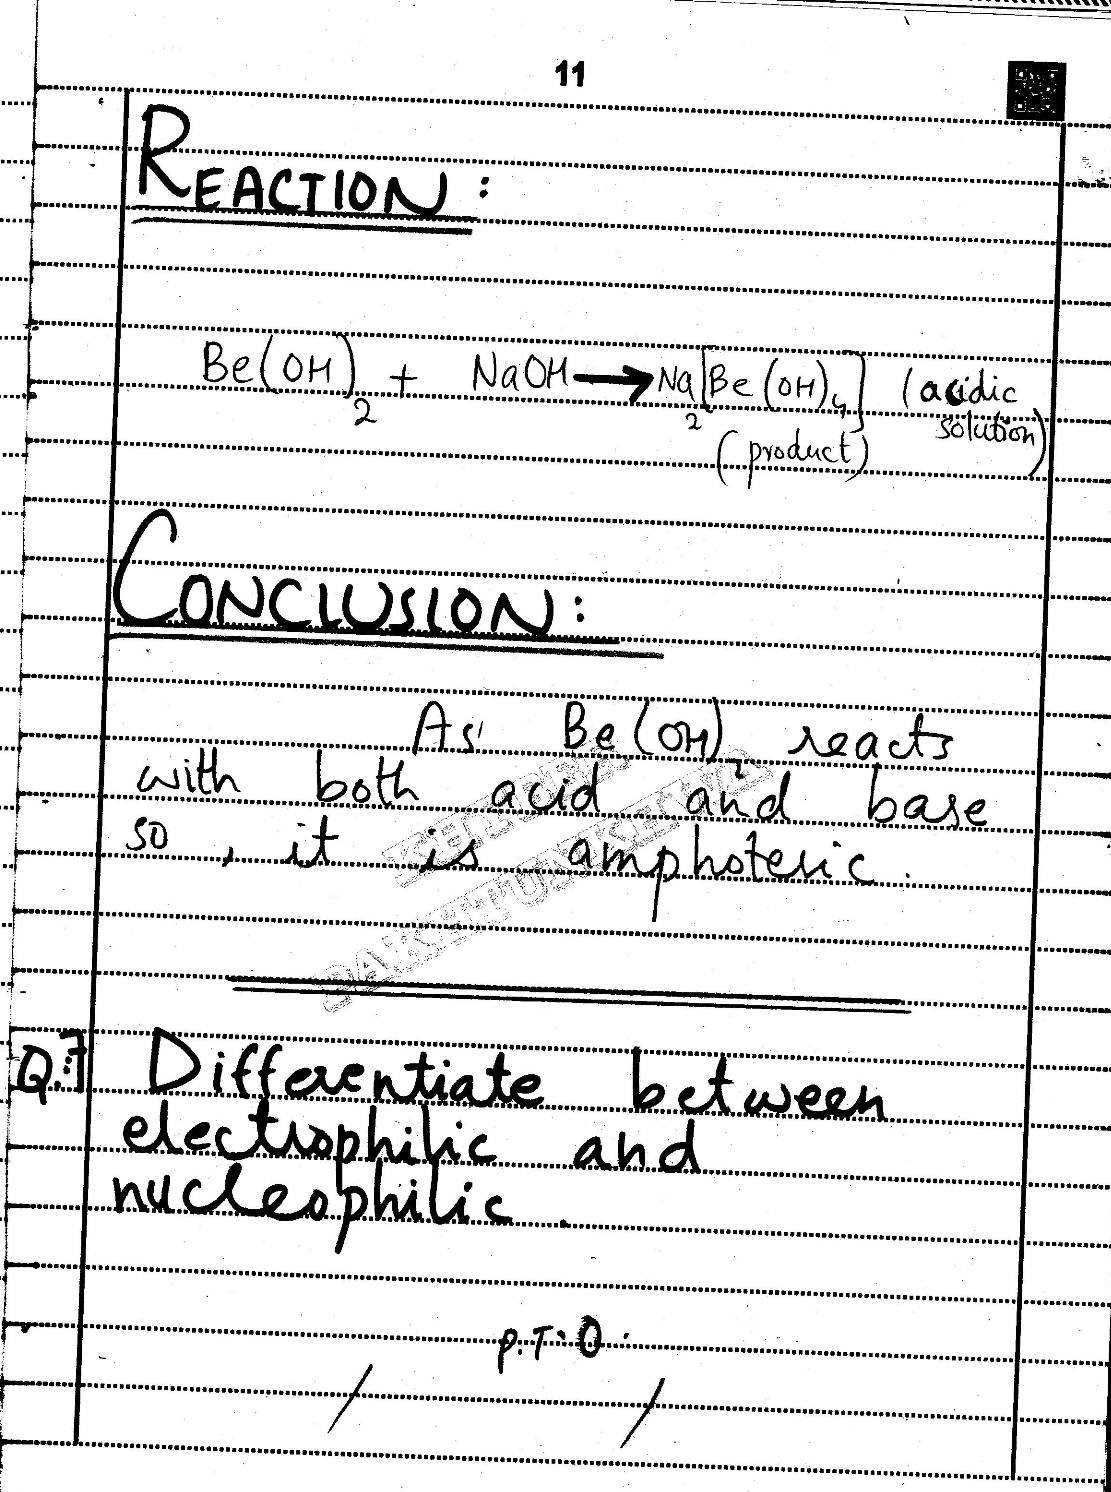 11
REACTION:
Be(OH)₂ + NaOH → Na₂[Be(OH)₄] (acidic
solution)
(product)
CONCLUSION:
As Be(OH)₂ reacts
with both acid and base
so, it is amphoteric.
Q.7 Differentiate between
electrophilic and
nucleophilic.
P.T.O.